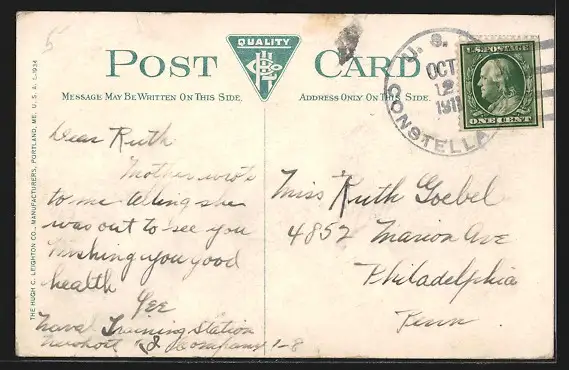 5
QUALITY
POST CARD
MESSAGE MAY BE WRITTEN ON THIS SIDE.
ADDRESS ONLY ON THIS SIDE.
THE HUGH C. LEIGHTON CO., MANUFACTURERS, PORTLAND, ME. U. S. A.
U. S.
OCT
2
1911
CONSTELLA
U.S. POSTAGE
ONE CENT
Dear Ruth
Mother wrote
to me telling she
was out to see you
Wishing you good
health
Naval Training Station
Company 1-8
Miss Ruth Goebel
4852 Marion Ave
Philadelphia
Penn